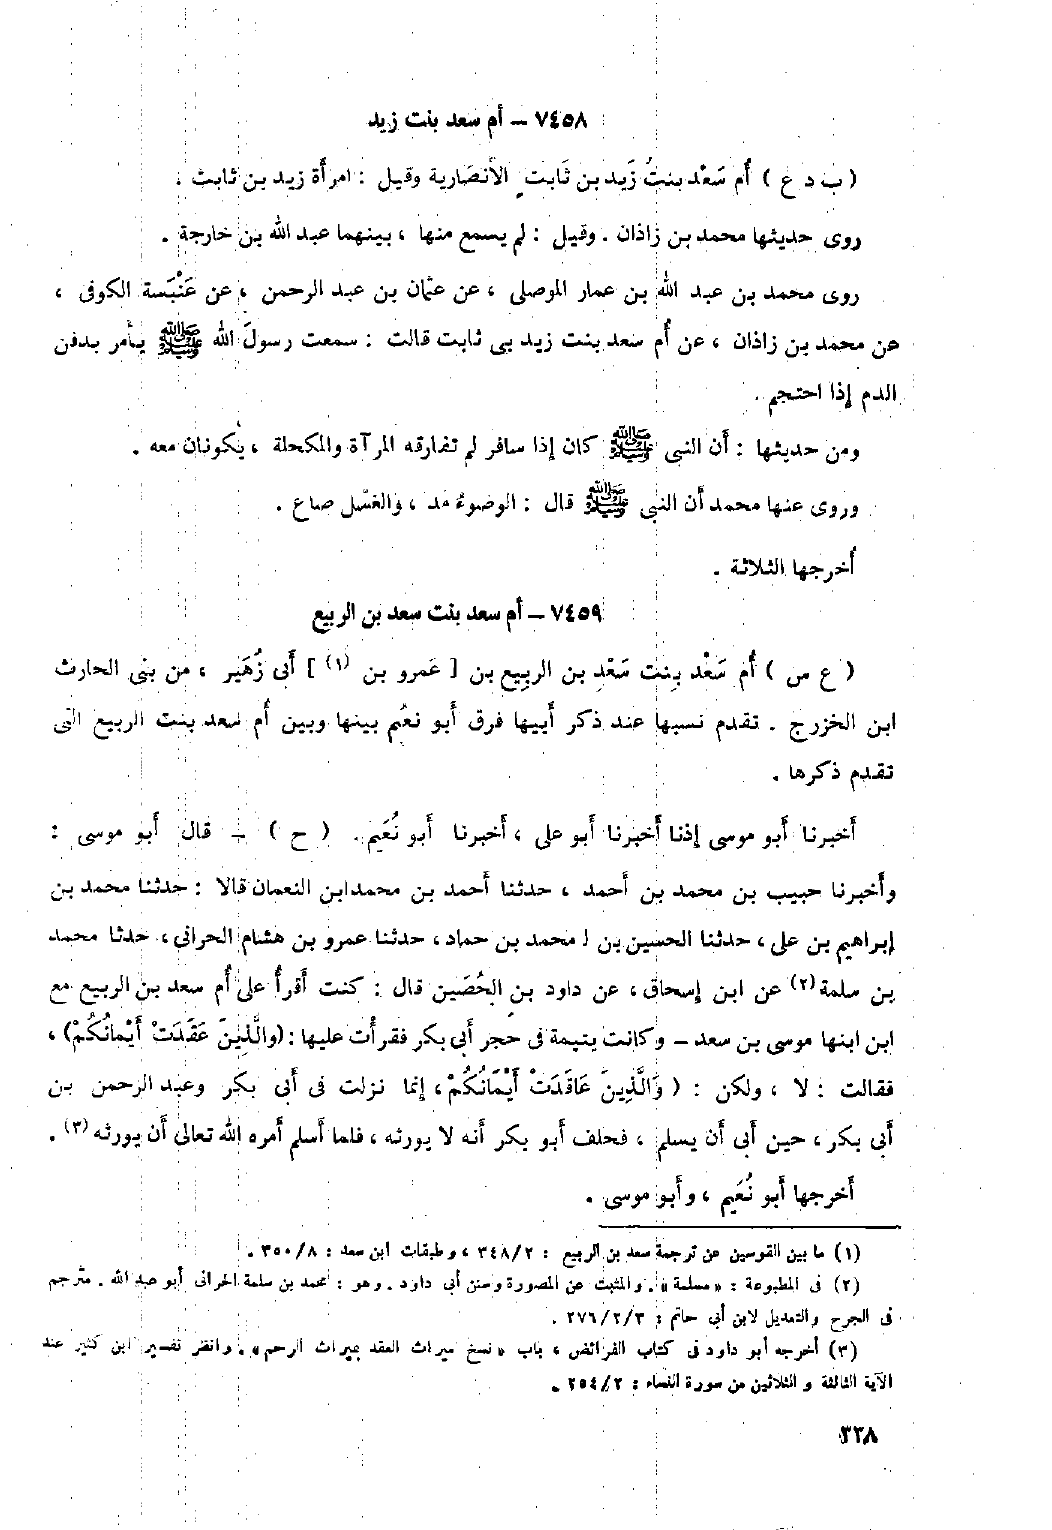 ٧٤٥٨ – أم سعد بنت زيد
( ب د ع ) أُم سَعْد بنتُ زَيد بن ثَابت الأَنصَارية وقيل : امرأة زيد بن ثابث .
روى حديثها محمد بن زاذان . وقيل : لم يسمع منها ، بينهما عبد الله بن خارجة .
روى محمد بن عبد الله بن عمار الموصلى ، عن عثمان بن عبد الرحمن ، عن عَنْبَسة الكوفى ،
عن محمد بن زاذان ، عن أُم سعد بنت زيد بى ثابت قالت : سمعت رسولَ الله ﷺ يأمر بدفن
الدم إذا احتجم .
ومن حديثها : أَن النبى ﷺ كان إذا سافر لم تفارقه المرآة والمكحلة ، يكونان معه .
وروى عنها محمد أَن النبى ﷺ قال : الوضوءُ مد ، والغسل صاع .
أَخرجها الثلاثة .
٧٤٥٩ – أم سعد بنت سعد بن الربيع
( ع س ) أُم سَعْد بِنت سَعْدِ بن الربِيع بن [ عَمرو بن (١) ] أَبى زُهَير ، من بنى الحارث
ابن الخزرج . تقدم نسبها عند ذكر أَبيها فرق أَبو نعُيم بينها وبين أُم سعد بنت الربيع التى
تقدم ذكرها .
أَخبرنا أَبو موسى إذنا أَخبرنا أَبو على ، أَخبرنا أَبو نُعَيم . ( ح ) – قال أَبو موسى :
وأَخبرنا حبيب بن محمد بن أَحمد ، حدثنا أَحمد بن محمد ابن النعمان قالا : حدثنا محمد بن
إبراهيم بن على ، حدثنا الحسين بن محمد بن حماد ، حدثنا عمرو بن هشام الحرانى ، حدثنا محمد
بن سلمة (٢) عن ابن إسحاق ، عن داود بن الحُصَين قال : كنت أَقرأُ على أُم سعد بن الربيع مع
ابن ابنها موسى بن سعد – وكانت يتيمة فى حجر أَبى بكر فقرأْت عليها : (والَّذِينَ عَقَدَتْ أَيْمانُكُمْ) ،
فقالت : لا ، ولكن : ( وَالَّذِينَ عَاقَدَتْ أَيْمَانُكُمْ ، إنما نزلت فى أَبى بكر وعبد الرحمن بن
أَبى بكر ، حين أَبى أَن يسلم ، فحلف أَبو بكر أَنه لا يورثه ، فلما أَسلم أَمره الله تعالى أَن يورثه (٣) .
أَخرجها أَبو نُعَيم ، وأَبو موسى .
(١) ما بين القوسين عن ترجمة سعد بن الربيع : ٣٤٨/٢ ، وطبقات ابن سعد : ٣٥٠/٨ .
(٢) فى المطبوعة : «مسلمة» . والمثبت عن المصورة وسنن أبى داود . وهو : محمد بن سلمة الحرانى أبو عبد الله . مترجم
فى الجرح والتعديل لابن أبى حاتم : ٢٧٦/٢/٣ .
(٣) أخرجه أبو داود فى كتاب الفرائض ، باب «نسخ ميراث العقد بميراث الرحم» . وانظر تفسير ابن كثير عند
الآية الثالثة و الثلاثين من سورة النساء : ٢٥٤/٢ .
٣٣٨